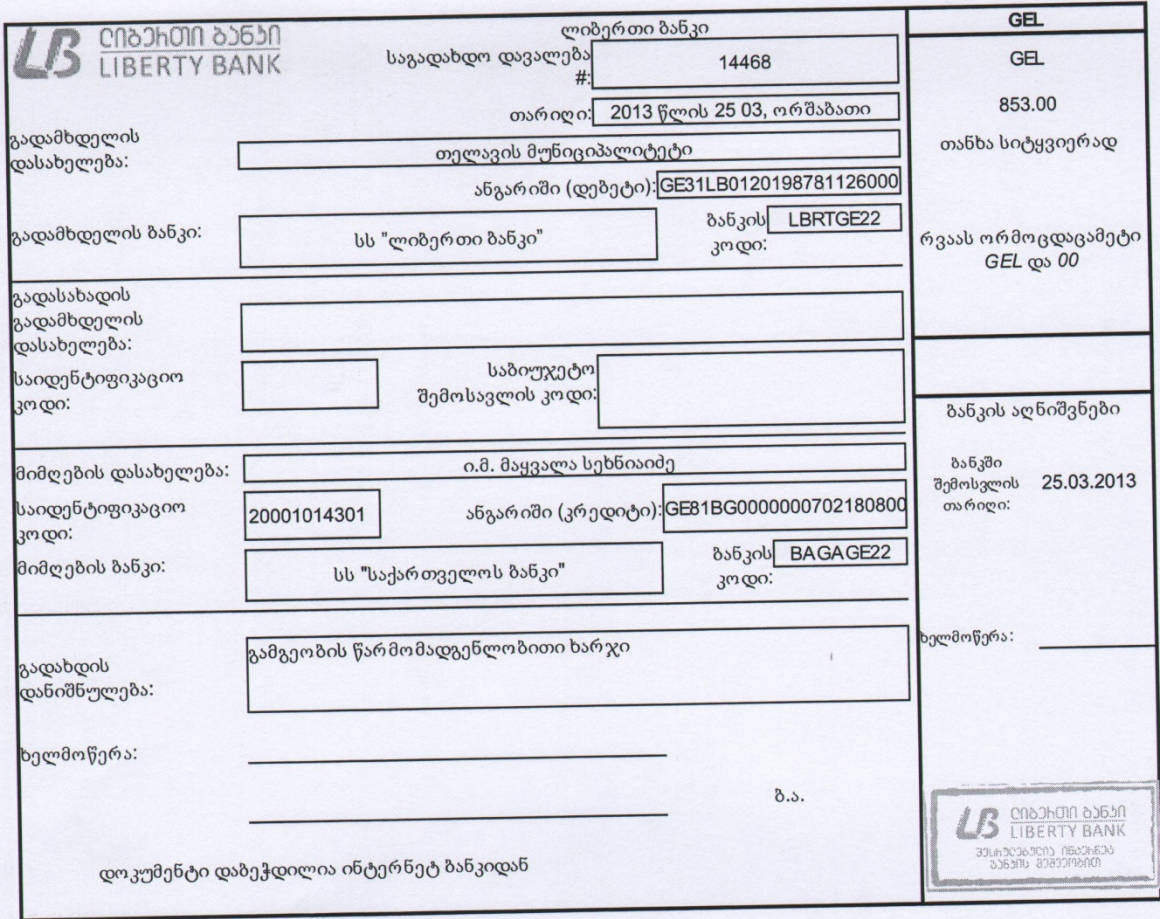 ლიბერთი ბანკი
LIBERTY BANK
ლიბერთი ბანკი
საგადახდო დავალება #: 14468
თარიღი: 2013 წლის 25 03, ორშაბათი
გადამხდელის დასახელება: თელავის მუნიციპალიტეტი
ანგარიში (დებეტი): GE31LB0120198781126000
გადამხდელის ბანკი: სს "ლიბერთი ბანკი"
ბანკის კოდი: LBRTGE22
გადასახადის
გადამხდელის
დასახელება:
საიდენტიფიკაციო კოდი:
საბიუჯეტო შემოსავლის კოდი:
მიმღების დასახელება: ი.მ. მაყვალა სეხნიაიძე
საიდენტიფიკაციო კოდი: 20001014301
ანგარიში (კრედიტი): GE81BG0000000702180800
მიმღების ბანკი: სს "საქართველოს ბანკი"
ბანკის კოდი: BAGAGE22
გადახდის დანიშნულება: გამგეობის წარმომადგენლობითი ხარჯი
ხელმოწერა:
ბ.ა.
დოკუმენტი დაბეჭდილია ინტერნეტ ბანკიდან
GEL
GEL
853.00
თანხა სიტყვიერად
რვაას ორმოცდაცამეტი
GEL და 00
ბანკის აღნიშვნები
ბანკში შემოსვლის თარიღი: 25.03.2013
ხელმოწერა:
ლიბერთი ბანკი
LIBERTY BANK
შესრულებულია ინტერნეტ
ბანკის მეშვეობით